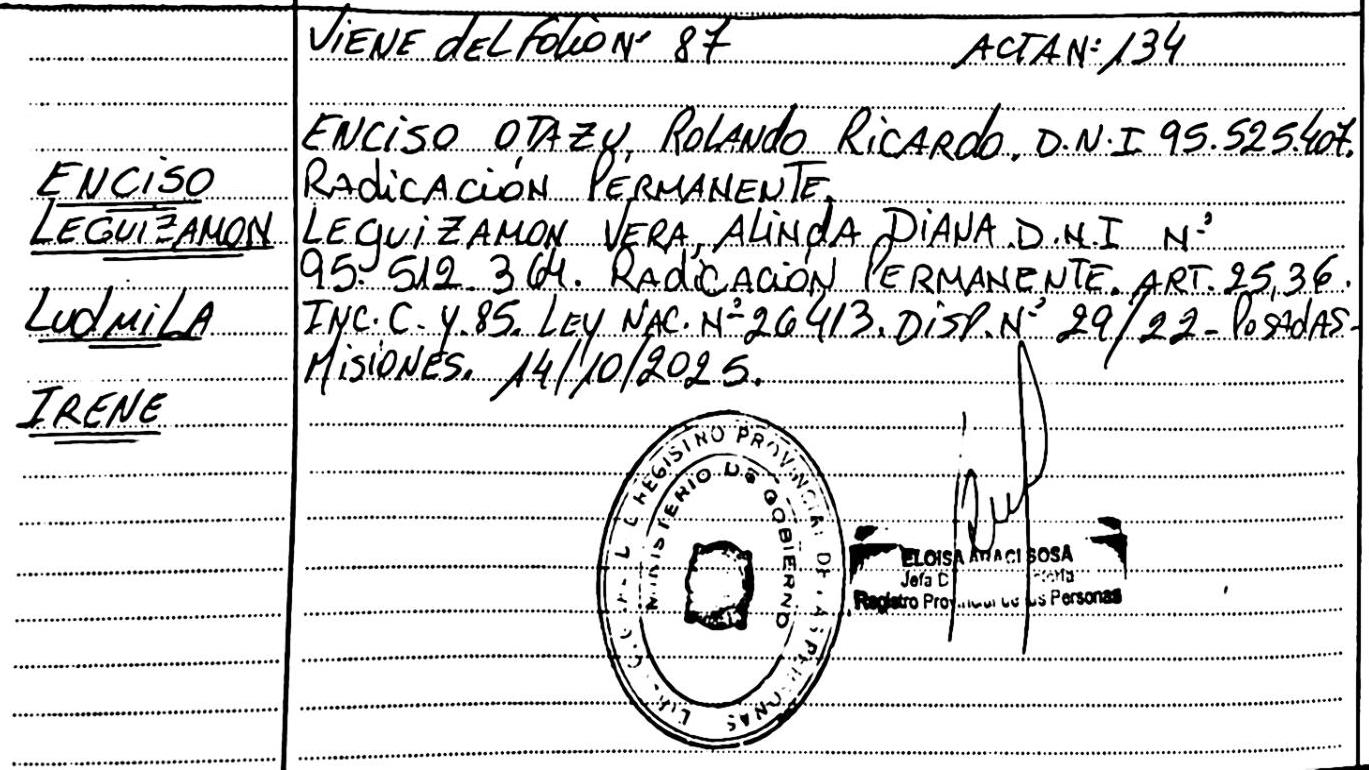 VIENE del Folio Nº 87 ACTA Nº: 134
ENCISO OTAZU, ROLANDO RICARDO. D.N.I 95.525.407.
ENCISO
RADICACIÓN PERMANENTE.
LEGUIZAMON
LEGUIZAMON VERA, ALINDA DIANA. D.N.I Nº
95.512.364. RADICACIÓN PERMANENTE. ART. 25,36.
LUDMILA
INC. C. Y. 85. LEY NAC. Nº 26413. DISP. Nº 29/22 - POSADAS -
MISIONES. 14/10/2025.
IRENE
REGISTRO PROVINCIAL DE LAS PERSONAS
MINISTERIO DE GOBIERNO
ELOISA SOSA
Jefa
Registro Personas